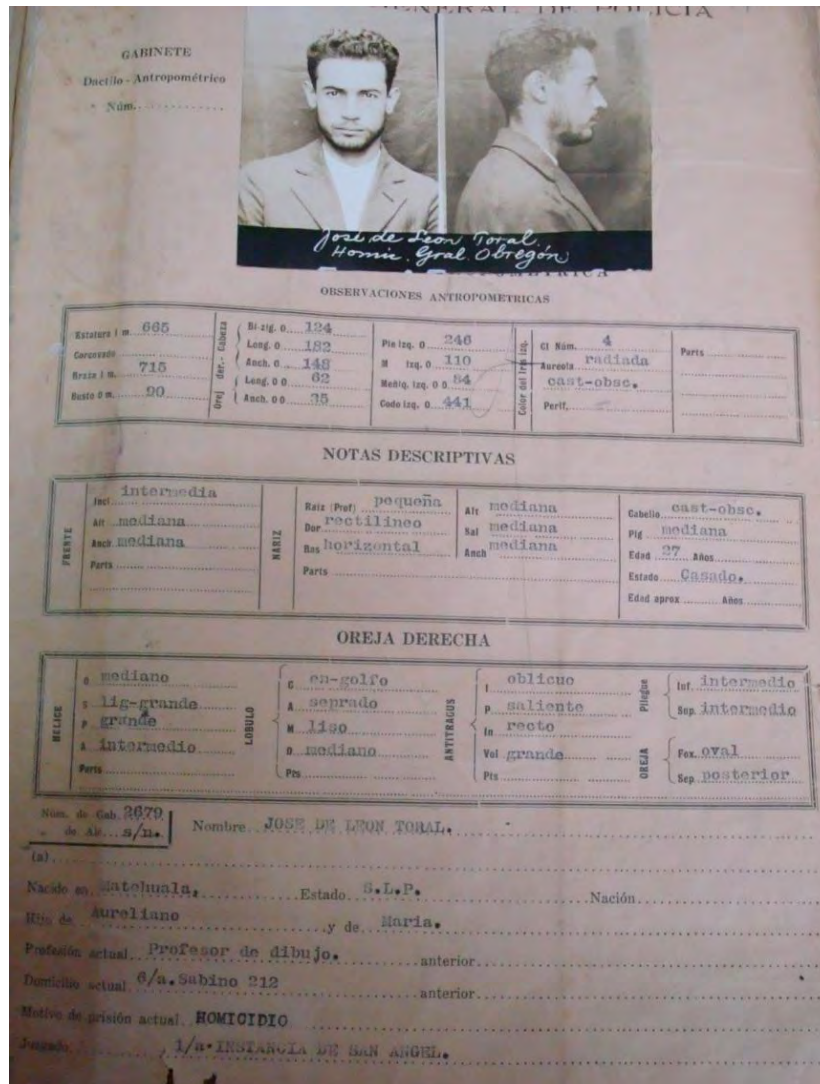 GENERAL DE POLICIA
GABINETE
Dactilo-Antropométrico
Núm.
José de Leon Toral.
Homic. Gral. Obregón
OBSERVACIONES ANTROPOMETRICAS
Estatura 1 m. 665
Braza 1 m. 715
Busto 0 m. 90
Orej der.- Cabeza
Bi-zig. 0 124
Long. 0 182
Anch. 0 148
Long. 0 0 62
Anch. 0 0 35
Pie izq. 0 246
M izq. 0 110
Mediq. izq. 0 0 84
Codo izq. 0 441
Color del Iris izq.
Cl Núm. 4
Aureola radiada
cast-obsc.
Perif.
Parts
NOTAS DESCRIPTIVAS
FRENTE
Incl intermedia
Alt mediana
Anch mediana
Parts
NARIZ
Raiz (Prof) pequeña
Dor rectilineo
Bas horizontal
Parts
Alt mediana
Sal mediana
Anch mediana
Cabello cast-obsc.
Pig mediana
Edad 27 Años
Estado Casado.
Edad aprox Años
OREJA DERECHA
HELICE
O mediano
S lig-grande
P grande
A intermedio
Parts
LOBULO
C en-golfo
A seprado
M liso
D mediano
Pts
ANTITRAGUS
I oblicuo
P saliente
In recto
Vol grande
Pts
Pliegue
Inf. intermedio
Sup. intermedio
OREJA
Fox. oval
Sep posterior
Núm. de Gab. 2679
" de Alc. s/n.
Nombre JOSE DE LEON TORAL.
(a)
Nacido en Matehuala, Estado S.L.P. Nación
Hijo de Aureliano y de Maria.
Profesión actual Profesor de dibujo. anterior
Domicilio actual 6/a. Sabino 212 anterior
Motivo de prisión actual HOMICIDIO
Juzgado 1/a. INSTANCIA DE SAN ANGEL.